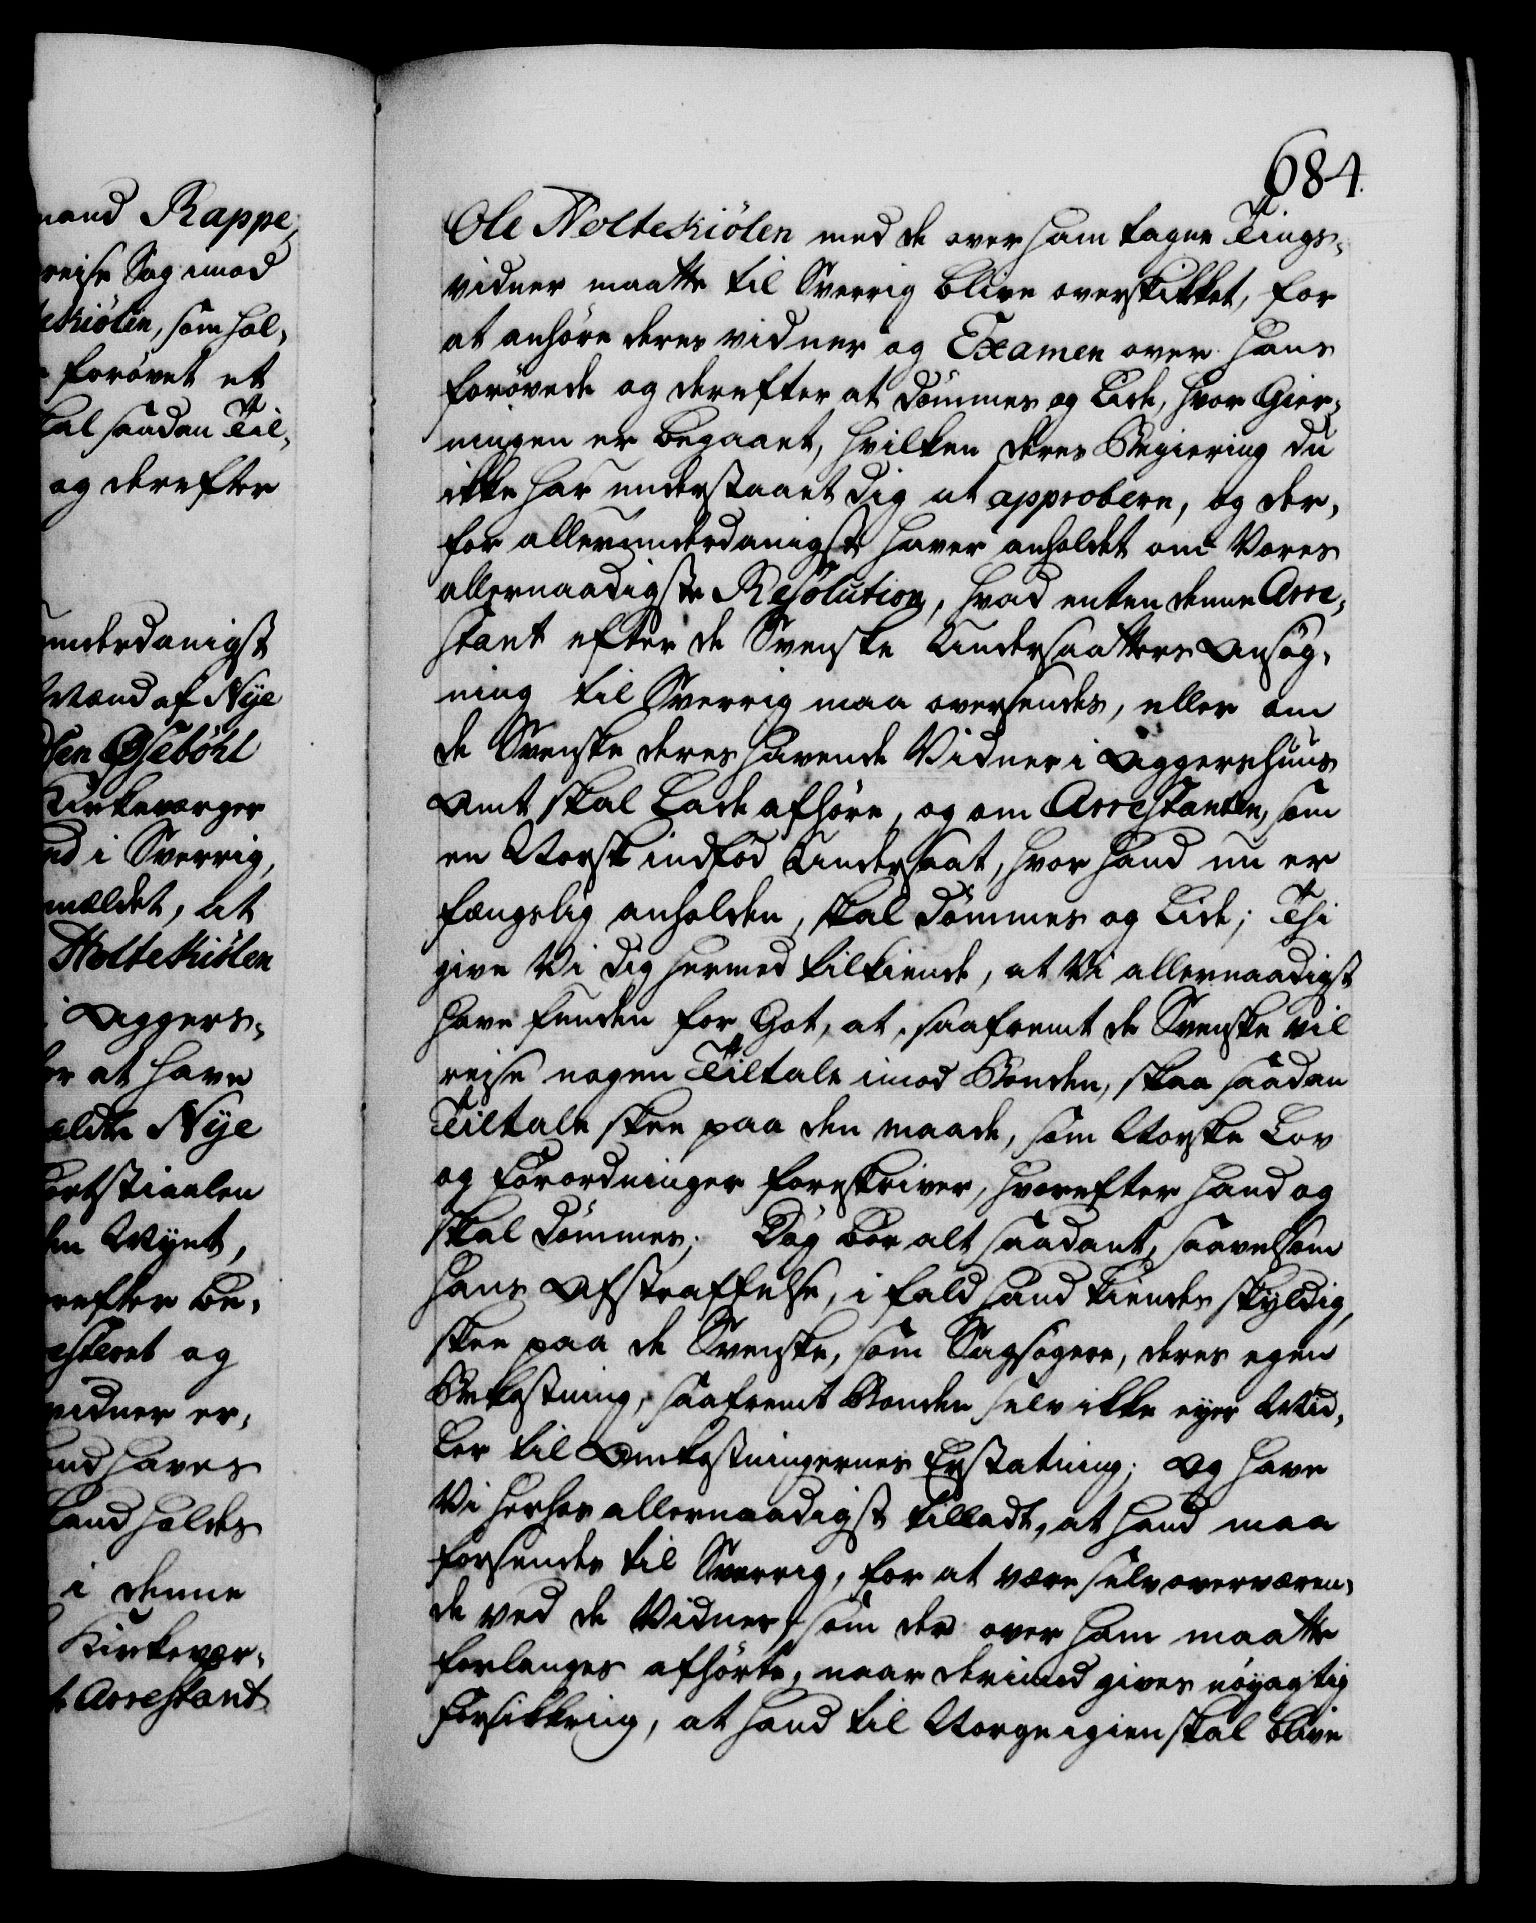 mand Rappe,
reise Sag imod
tekiölen, som hal,
forövet et
kal saadan Til,
og derefter
underdanigst
Mand af Nÿe
sen Gsebõhl
Kirkeværger
ed i Sverrig,
meldet, at
Holtekiölen
i Aggers,
or at have
eldte Nÿe
ortstiaalen
en Mÿnt,
refter be,
esteret og
vidner er,
and haves
Land holdes
i denne
Kirkevær,
t Arrestant
684.
Ole Holtekiölen med de over ham tagne Tings,
vidner maatte til Sverrig blive overskikket, for
at anhöre deres vidner og Examen over hans
forövede og derefter at dömmes og lide, hvor Gier,
ningen er begaaet, hvilken deres Begiering du
ikke har understaaet dig at approbere, og der,
for allerunderdanigst haver anholdet om Vores
allernaadigste Resolution, hvad enten denne Arre,
stant efter de Svenske Undersaatters Ansög,
ning til Sverrig maa oversendes, eller om
de Svenske deres havende Vidner i Aggershuus
Amt skal lade afhöre, og om Arrestanten, som
en Norsk indföd Undersaat, hvor hand nu er
fængslig anholden, skal dömmes og lide; Thi
give Vi dig hermed tilkiende, at Vi allernaadigst
have funden for Got, at, saafremt de Svenske vil
reise nogen Tiltale imod Bonden, skal saadan
Tiltale skee paa den maade, som Norske Lov
og Forordninger foreskriver, hvorefter hand og
skal dömmes; Dog bör alt saadant, saavelsom
hans Afstraffelse, i fald hand kiendes skÿldig,
skee paa de Svenske, som Sagsögere, deres egen
Bekostning, saafremt Bonden selv ikke eyer Mid,
ler til Omkostningernes Erstatning; Og have
Vi herhos allernaadigst tilladt, at hand maa
forsendes til Sverrig, for at være selv overværen,
de ved de Vidner, som der over ham maatte
forlanges afhörte, naar derimod gives nöÿagtig
Forsikkring, at hand til Norge igien skal blive